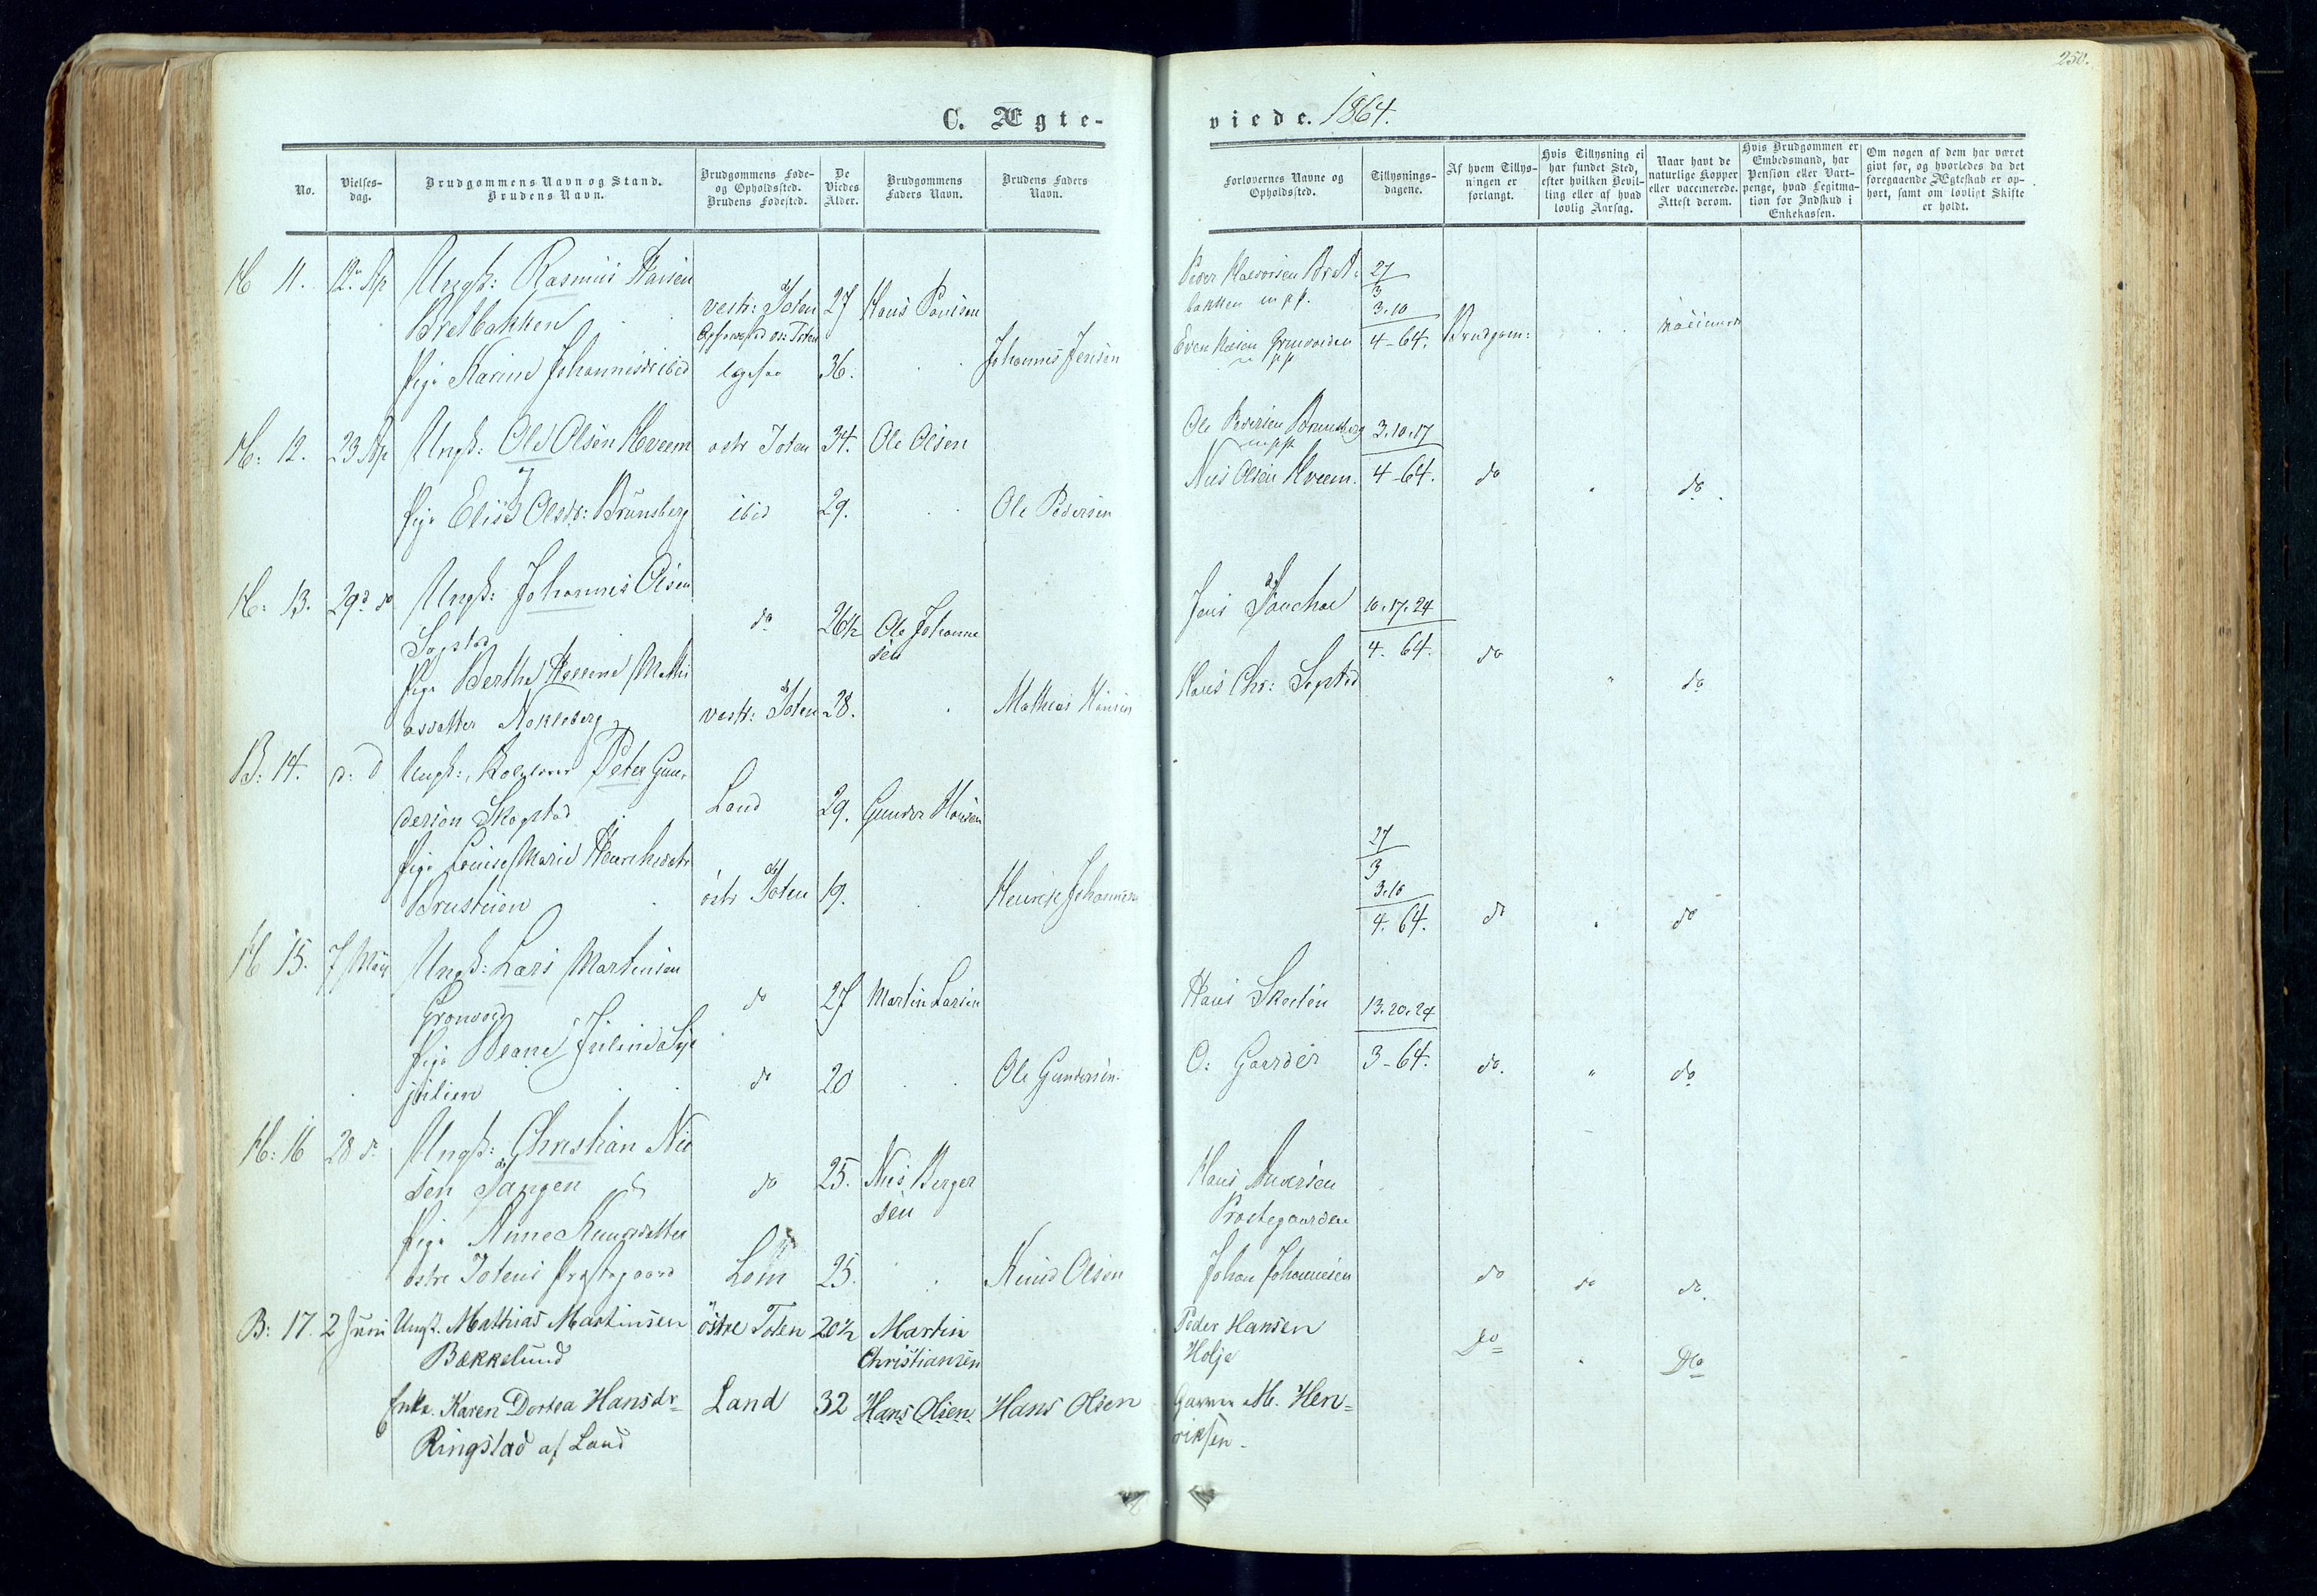 250.
C. Ægte-
viede. 1864.
No.
Vielses-
dag.
Brudgommens Navn og Stand.
Brudens Navn.
Brudgommens Føde-
og Opholdssted.
Brudens Fødested.
De
Viedes
Alder.
Brudgommens
Faders Navn.
Brudens Faders
Navn.
Forlovernes Navne og
Opholdssted.
Tillysnings-
dagene.
Af hvem Tillys-
ningen er
forlangt.
Hvis Tillysning ei
har fundet Sted,
efter hvilken Bevil-
ling eller af hvad
lovlig Aarsag.
Naar havt de
naturlige Kopper
eller vaccinerede.
Attest derom.
Hvis Brudgommen er
Embedsmand, har
Pension eller Vart-
penge, hvad Legitma-
tion for Indskud i
Enkekassen.
Om nogen af dem har været
givt før, og hvorledes da det
foregaaende Ægteskab er op-
hørt, samt om lovligt Skifte
er holdt.
H 11. 12 Ap Ungk: Rasmus Hansen
Bretbakken
vestr: Toten 27 Hans Paulsen
Pige Karine Johannisdr ibid 36. Johannes Jensen
Peder Halvorsen Bret-
bakken m.p.p.
27
3
3.10
4-64. Brudgom:
m.p.p.
H: 12. 23 Ap Ungk: Ole Olsen Kveem ostr Toten 34. Ole Olsen
Pige Elise Olsdr: Brunsberg ibid 29. Ole Pedersen
Ole Pedersen Brunsberg 3.10.17
m.p.p.
Nils Olsen Kveem. 4-64. do do.
H: 13. 29d do Ungk: Johannes Olsen
Sogstad
do 26½ Ole Johanne
sen
Pige Berthe Helene Mathi
asdatter Nøkleberg vestr: Toten 28. Mathias Hansen
10.17.24
4. 64. do do
Hans Chr: Sogstad
B: 14. d: d Ungk: Peter Gun-
dersen Skogstad Land 29. Gunder Hansen
Pige Louise Marie Henrikesdtr
østr Toten 19. Henrik Johannesen
27
3
3.10
4. 64. do do
H 15. 7 Mai Ungk: Lars Martinsen
Grønvold do 27 Martin Larsen
Pige
do 20 Ole Gundersen.
Hans 13.20.24
O: Gaarder 3-64. do. " do
H: 16 28 d. Ungk: Christian Nil
sen Tangen do 25. Nils Berger
sen
Pige Anne Knudsdatter
østre Totens Præstegaard Lom 25. Knud Olsen
Hans Andersen
Præstegaarden
Johan Johannesen do do do.
B: 17. 2 Juni Ungk. Mathias Martinsen østre Toten 20½ Martin
Bækkelund Christiansen
Enke. Karen Dortea Hansdr= Land 32 Hans Olsen Hans Olsen
Ringstad af Land
Peder Hansen
Holje Do Do
M. Hen=
riksen.